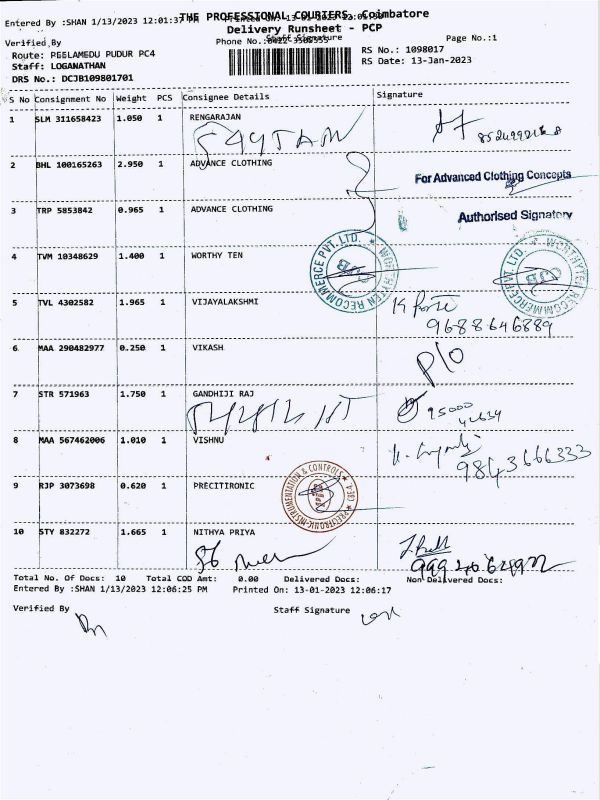 Entered By :SHAN 1/13/2023 12:01:37
THE PROFESSIONAL COURIERS, Coimbatore
Delivery Runsheet - PCP
Verified By
Staff Signature
Page No.:1
Route: PEELAMEDU PUDUR PC4
RS No.: 1098017
Staff: LOGANATHAN
RS Date: 13-Jan-2023
DRS No.: DCJB109801701
S No Consignment No Weight PCS Consignee Details Signature
1 SLM 311658423 1.050 1 RENGARAJAN
2 BHL 100165263 2.950 1 ADVANCE CLOTHING
For Advanced Clothing Concepts
3 TRP 5853842 0.965 1 ADVANCE CLOTHING
Authorised Signatory
4 TVM 10348629 1.400 1 WORTHY TEN
WORTHYTEN RECOMMERCE PVT. LTD.
WORTHYTEN RECOMMERCE PVT. LTD.
5 TVL 4302582 1.965 1 VIJAYALAKSHMI
9688646889
6 MAA 290482977 0.250 1 VIKASH
P/O
7 STR 571963 1.750 1 GANDHIJI RAJ
95000
8 MAA 567462006 1.010 1 VISHNU
9843666333
9 RJP 3073698 0.620 1 PRECITIRONIC
10 STY 832272 1.665 1 NITHYA PRIYA
Total No. Of Docs: 10 Total COD Amt: 0.00 Delivered Docs: Non Delivered Docs:
Entered By :SHAN 1/13/2023 12:06:25 PM Printed On: 13-01-2023 12:06:17
Verified By Staff Signature